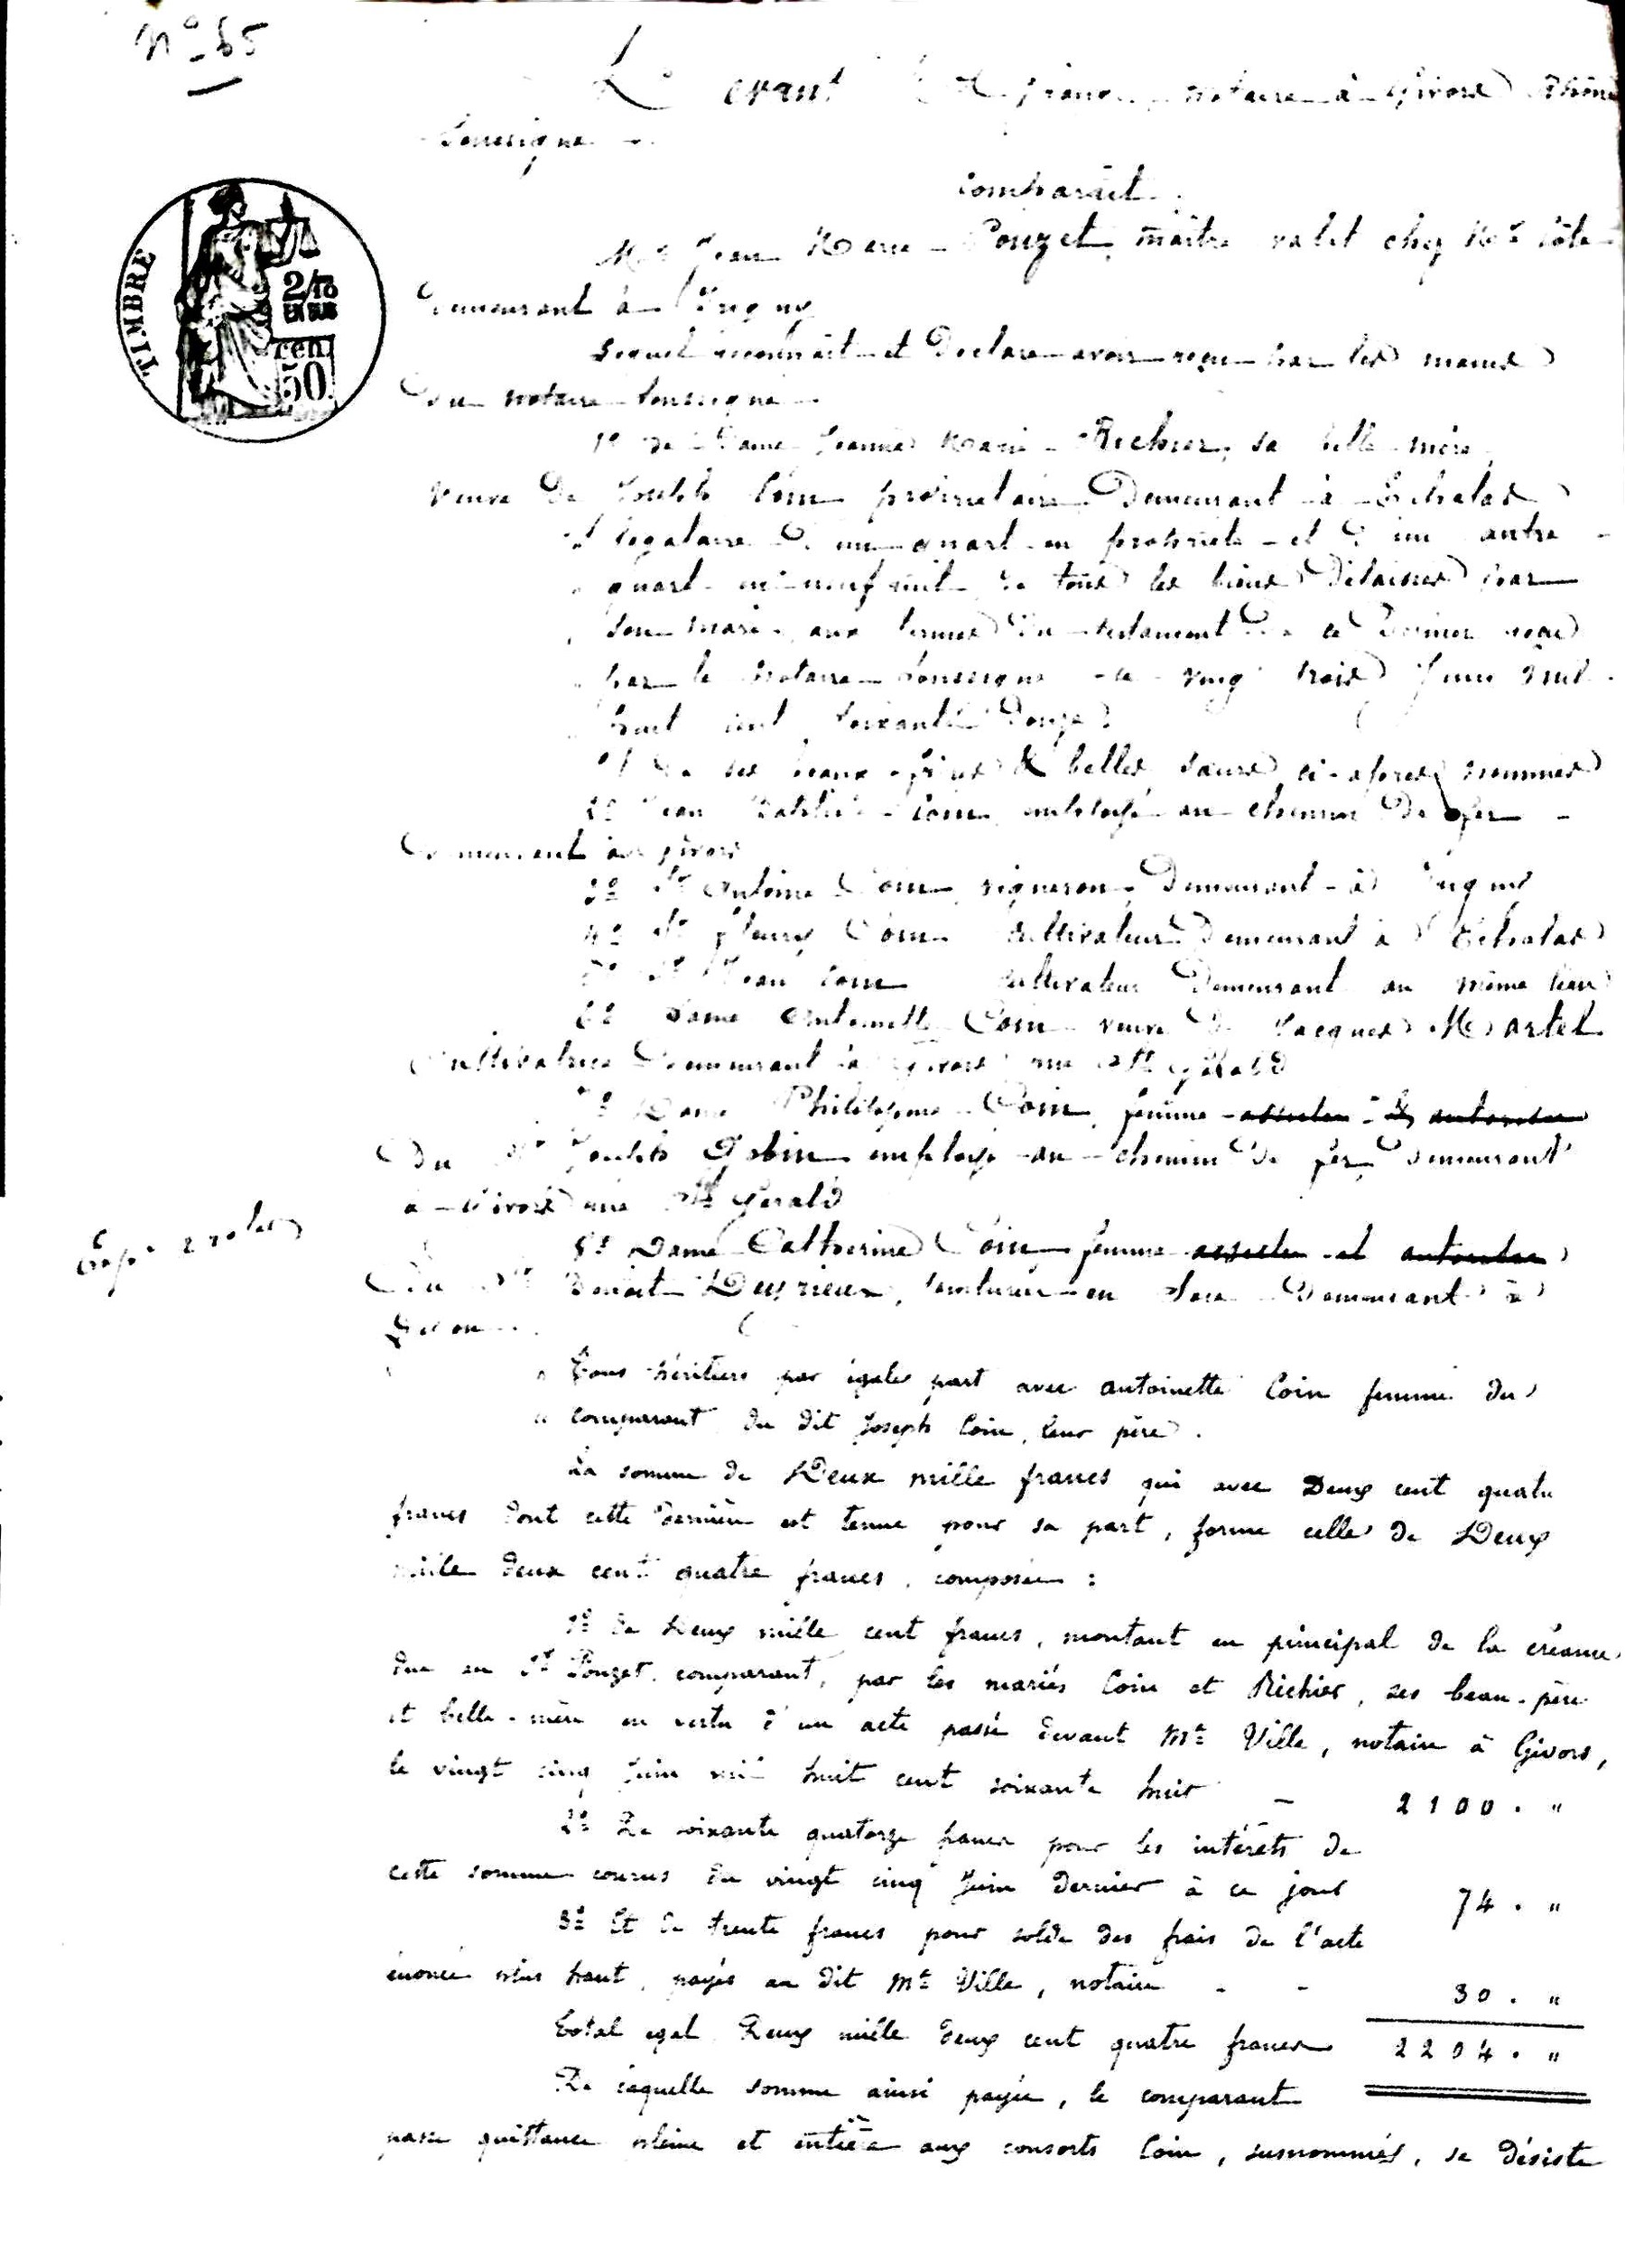 N° 65
Devant Me notaire à Givors Rhône
Soussigné
comparait
Mr Jean Marie Pouzet, maître valet chez Mr Côte
Demeurant à Irigny
Lequel reconnait et Declare avoir reçu par les mains
Du notaire soussigné
1° de Dame Jeanne Marie Richier, sa belle mère,
veuve De Joseph Coin propriétaire Demeurant à Echalas
légataire D'un quart en propriété et D'un autre
quart en usufruit de tous les biens Délaissés par
son mari, aux termes Du testament De ce Dernier reçu
par le notaire soussigné le vingt trois Juin mil
huit cent soixante Douze
et De ses beaux-frères & belles sœurs ci-après nommés
2° Jean Coin employé au chemin De fer
Demeurant à Givors
3° Sr Antoine Coin vigneron, Demeurant à Irigny
4° Sr Fleury Coin cultivateur Demeurant à Echalas
5° Sr Jean Coin cultivateur Demeurant au même lieu
6° Dame Antoinette Coin veuve De Jacques Martel
cultivatrice Demeurant à Givors rue St Gérald
7° Dame Philomène Coin, femme assistée & autorisée
Du Sr Joseph Robin employé au chemin De fer Demeurant
à Givors rue St Gérald
Expé 2 roles
8° Dame Catherine Coin femme assistée et autorisée
Du Sr Benoit Desrieux, teinturier en soie Demeurant à
Lyon
" Tous héritiers par égales part avec antoinette Coin femme du
" comparant du dit Joseph Coin, leur père.
La somme de Deux mille francs qui avec Deux cent quatre
francs dont cette dernière est tenue pour sa part, forme celle de Deux
mille deux cent quatre francs, composée :
1° De Deux mille cent francs, montant en principal de la créance
due au Sr Pouzet, comparant, par les mariés Coin et Richier, ses beau-père
et belle-mère en vertu d'un acte passé devant Me Ville, notaire à Givors,
le vingt cinq Juin mil huit cent soixante huit - 2100. "
2° De soixante quatorze francs pour les intérêts de
cette somme courus du vingt cinq Juin dernier à ce jour 74. "
3° Et de trente francs pour solde des frais de l'acte
énoncé plus haut, payés au dit Me Ville, notaire - - 30. "
Total egal Deux mille deux cent quatre francs 2204. "
De laquelle somme ainsi payée, le comparant
passe quittance pleine et entière aux consorts Coin, susnommés, se désiste
TIMBRE
2/10
EN SUS
50 cen